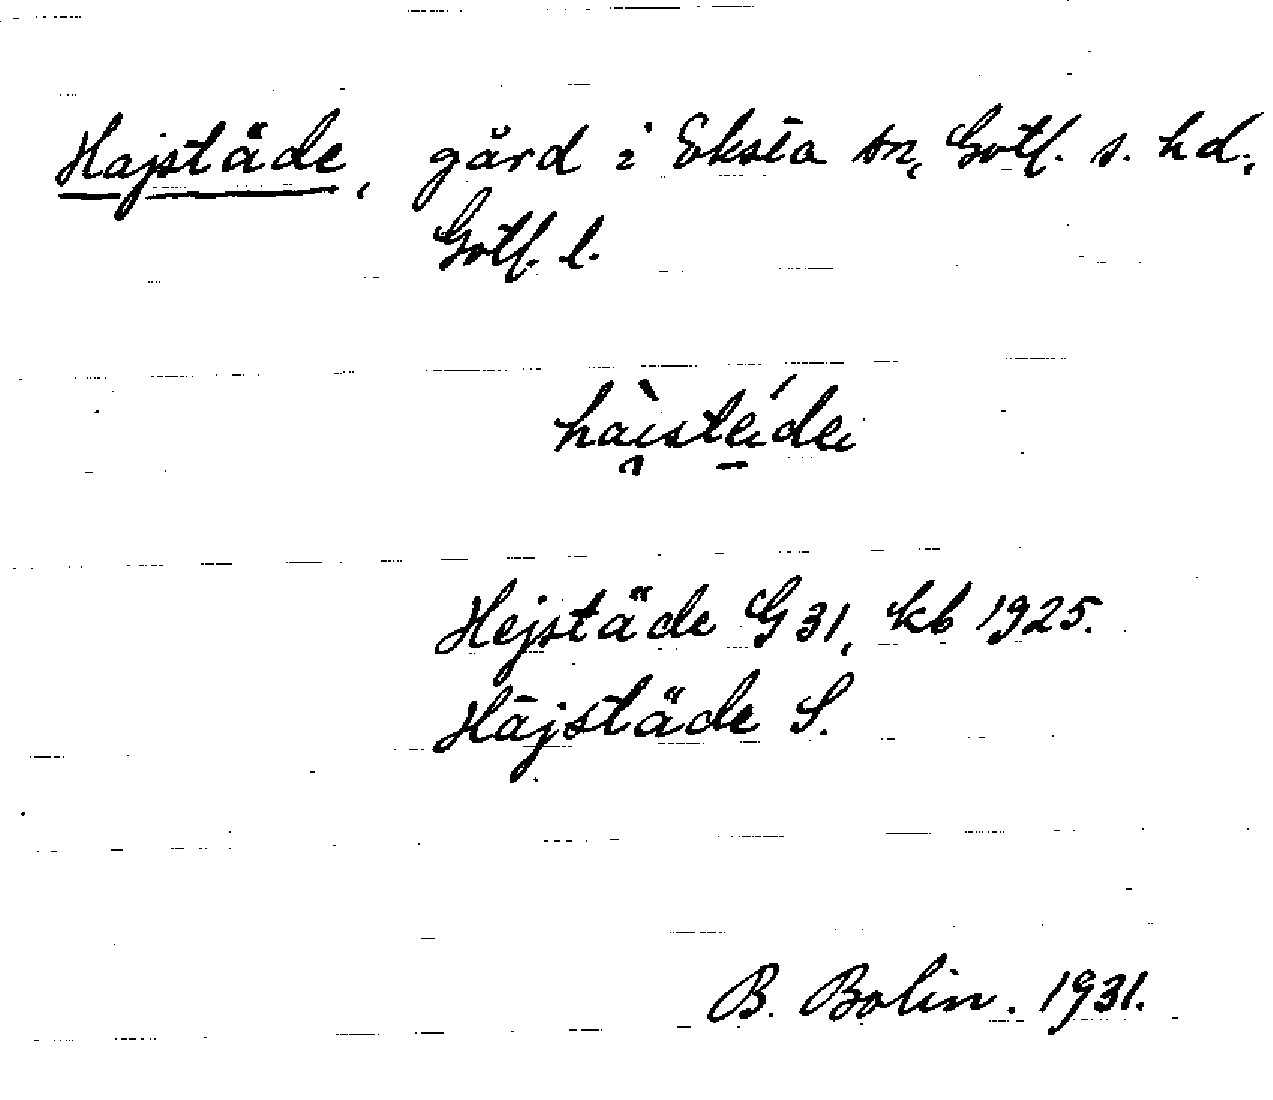 Hajstäde, gård i Eksta sn, Gotl. s. hd.,
Gotl. l.
hàisteíde
Hejstäde G 31, kb 1925.
Häjstäde S.
B. Bolin. 1931.